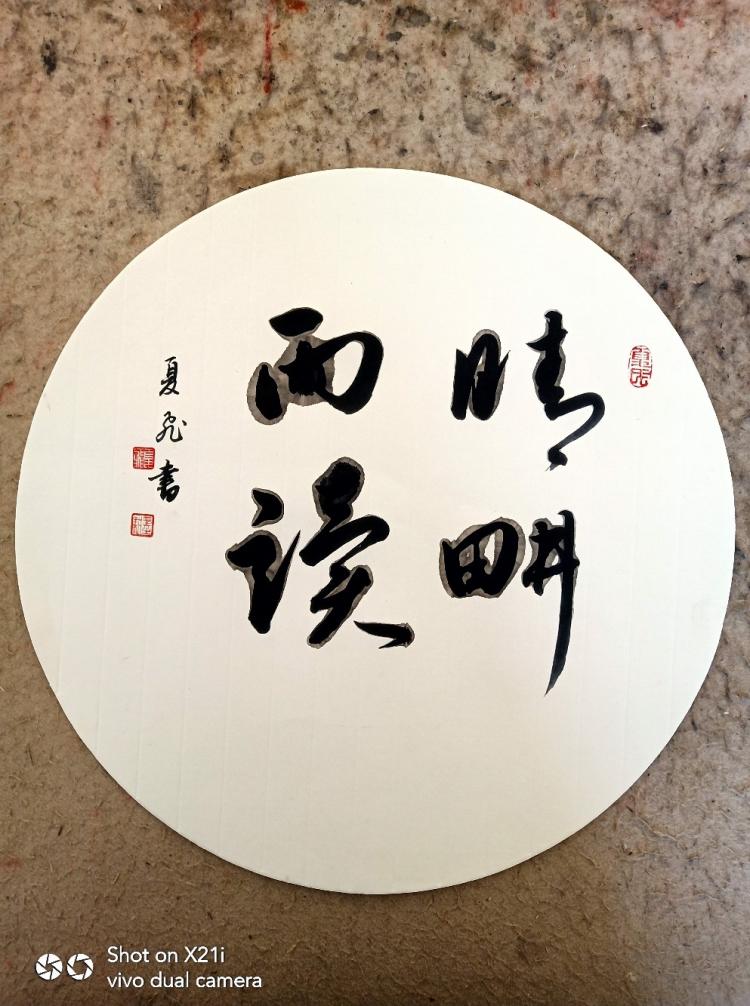 晴畊
雨读
夏飞書
Shot on X21i
vivo dual camera